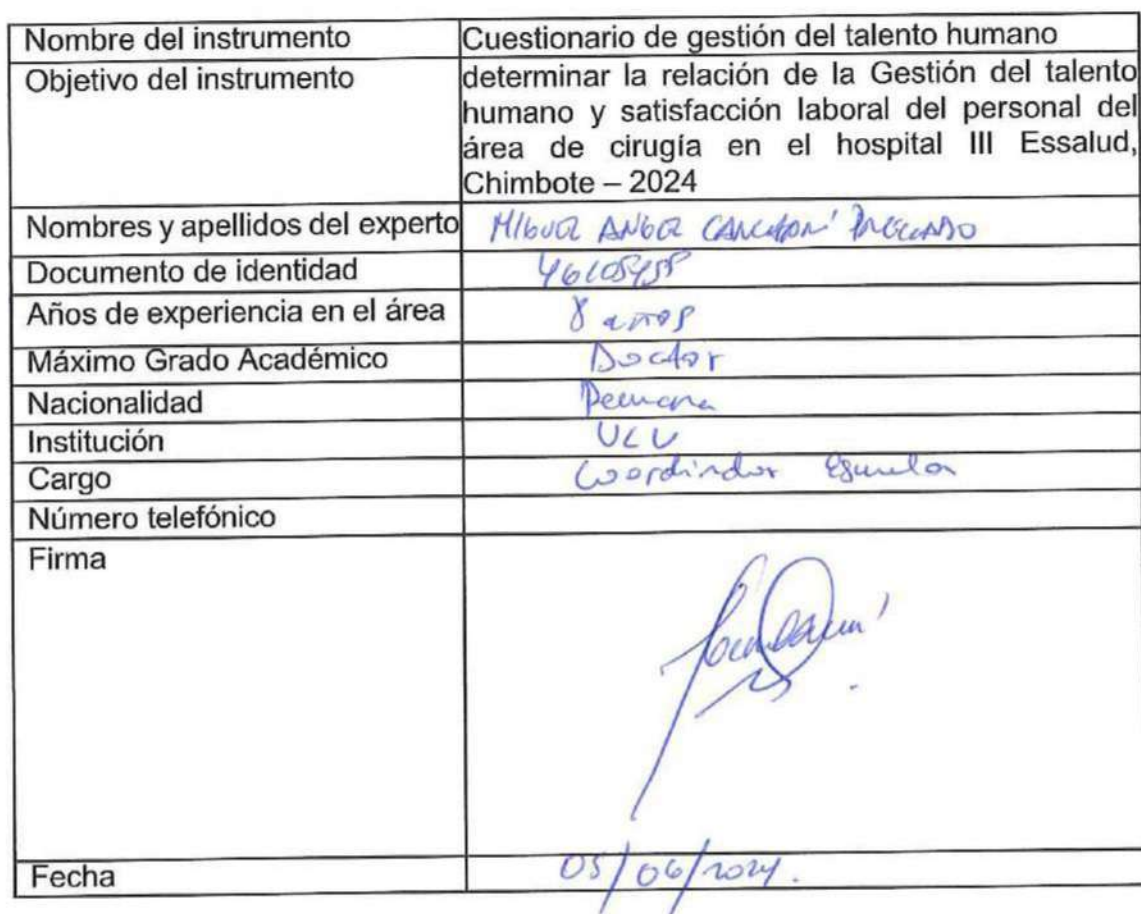 Nombre del instrumento Cuestionario de gestión del talento humano
Objetivo del instrumento determinar la relación de la Gestión del talento
humano y satisfacción laboral del personal del
área de cirugía en el hospital III Essalud,
Chimbote – 2024
Nombres y apellidos del experto MIGUEL ANGEL
Documento de identidad
Años de experiencia en el área 8 años
Máximo Grado Académico Doctor
Nacionalidad Peruana
Institución UCV
Cargo Coordinador
Número telefónico
Firma
Fecha 05/06/2024.